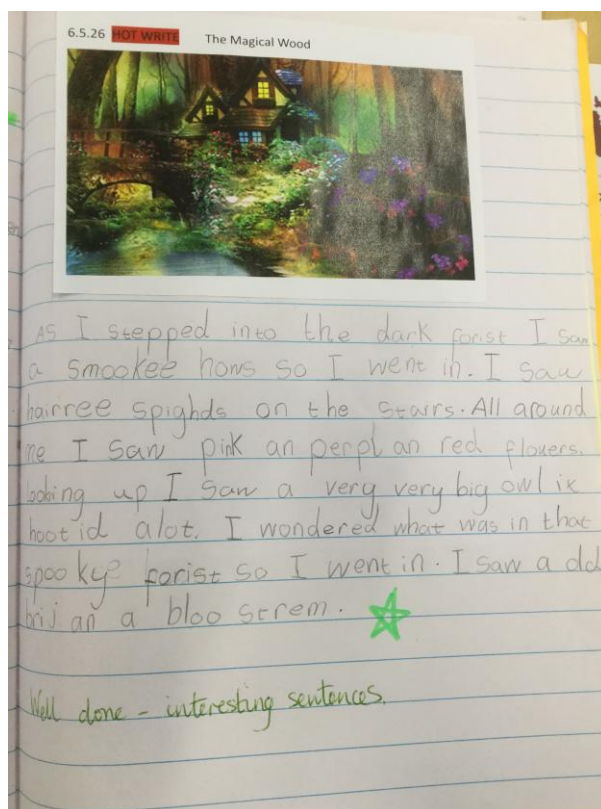 6.5.26 HOT WRITE The Magical Wood
As I stepped into the dark forist I saw
a smookee hows so I went in. I saw
hairree spighds on the stairs. All around
me I saw pink an perpl an red flowers.
looking up I saw a very very big owl it
hoot id alot. I wondered what was in that
spookye forist so I went in. I saw a old
brij an a bloo strem.
Well done - interesting sentences.